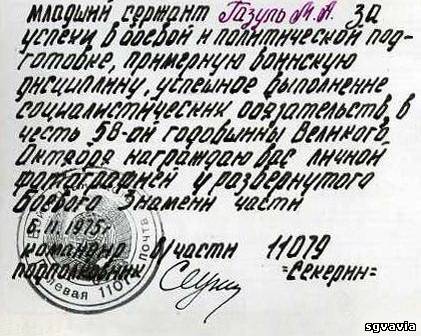 младший сержант Газуль М.А. за
успехи в боевой и политической под-
готовке, примерную воинскую
дисциплину, успешное выполнение
социалистических обязательств, в
честь 58-ой годовщины Великого
Октября награждаю вас личной
фотографией у развернутого
Боевого Знамени части
6.11.1975г
командир в/части 11079
подполковник =Секерин=
полевая почта 11079
sgvavia